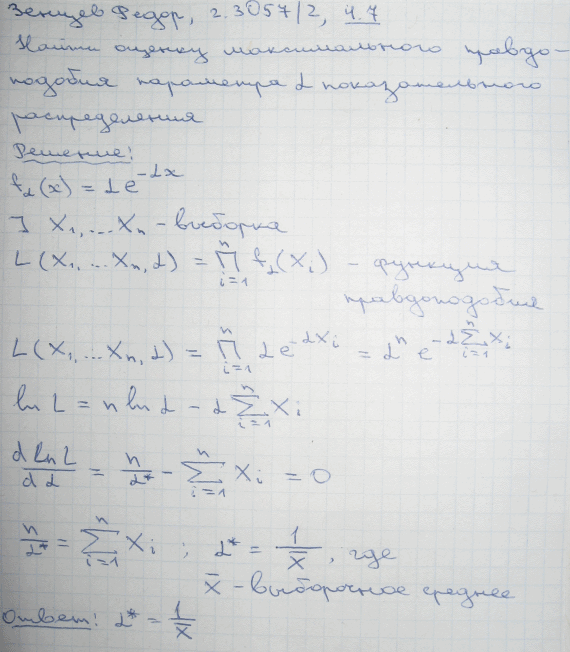 Зенцев Федор, г. 3057/2, ч. 7
Найти оценку максимального правдо-
подобия параметра α показательного
распределения
Решение!
f_α(x) = α e^{-αx}
] X_1, ... X_n - выборка
L(X_1, ... X_n, α) = ∏_{i=1}^{n} f_α(X_i) - функция
правдоподобия
L(X_1, ... X_n, α) = ∏_{i=1}^{n} α e^{-αX_i} = α^n e^{-α∑_{i=1}^{n} X_i}
ln L = n ln α - α ∑_{i=1}^{n} X_i
d ln L / dα = n/α* - ∑_{i=1}^{n} X_i = 0
n/α* = ∑_{i=1}^{n} X_i ; α* = 1/X̄, где
X̄ - выборочное среднее
Ответ! α* = 1/X̄